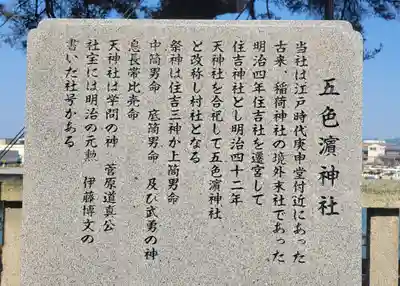 五色濵神社
当社は江戸時代庚申堂付近にあった
古来、稲荷神社の境外末社であった
明治四年住吉社を遷宮して
住吉神社とし明治四十二年
天神社を合祀して五色濵神社
と改称し村社となる
祭神は住吉三神か上筒男命
中筒男命 底筒男命 及び武勇の神
息長帯比売命
天神社は学問の神 菅原道真公
社宝には明治の元勲 伊藤博文の
書いた社号がある